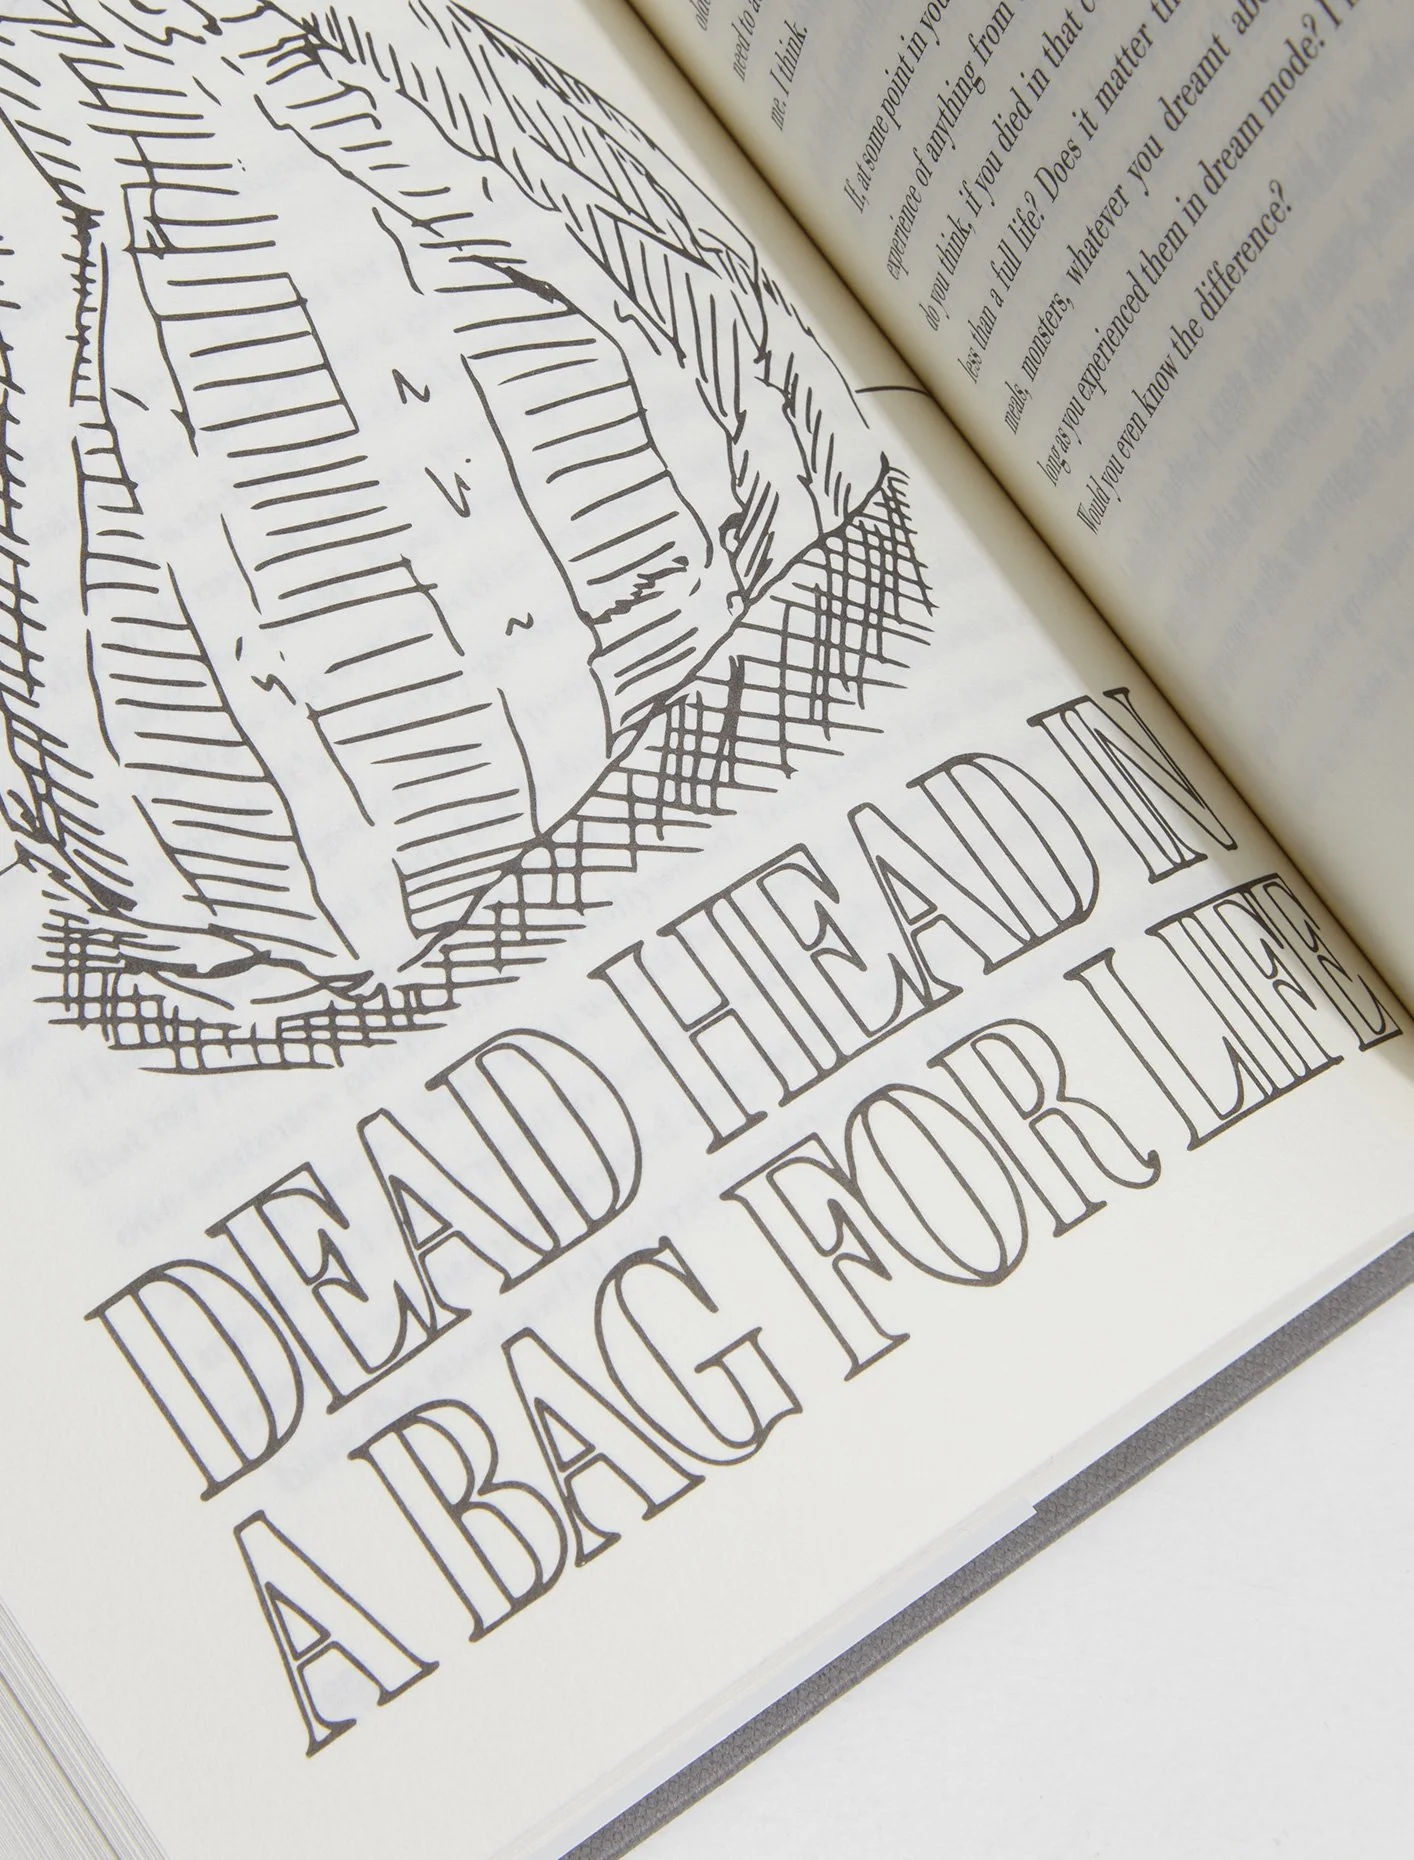 DEAD HEAD IN
A BAG FOR LIFE
need to
me. I think.
If, at some point in
experience of anything from
do you think, if you died in that
less than a full life? Does it matter
meals, monsters, whatever you dreamt
long as you experienced them in dream mode? I
Would you even know the difference?